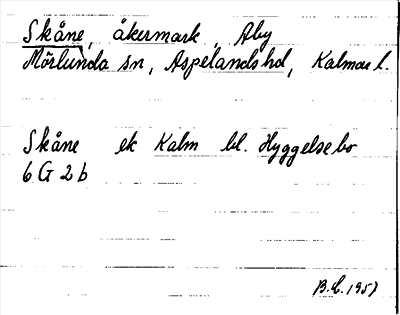 Skåne, åkermark, Åby
Mörlunda sn, Aspelands hd, Kalmar l.
Skåne ek Kalm bl. Hyggelsebo
6 G 2 b
B.L. 1957